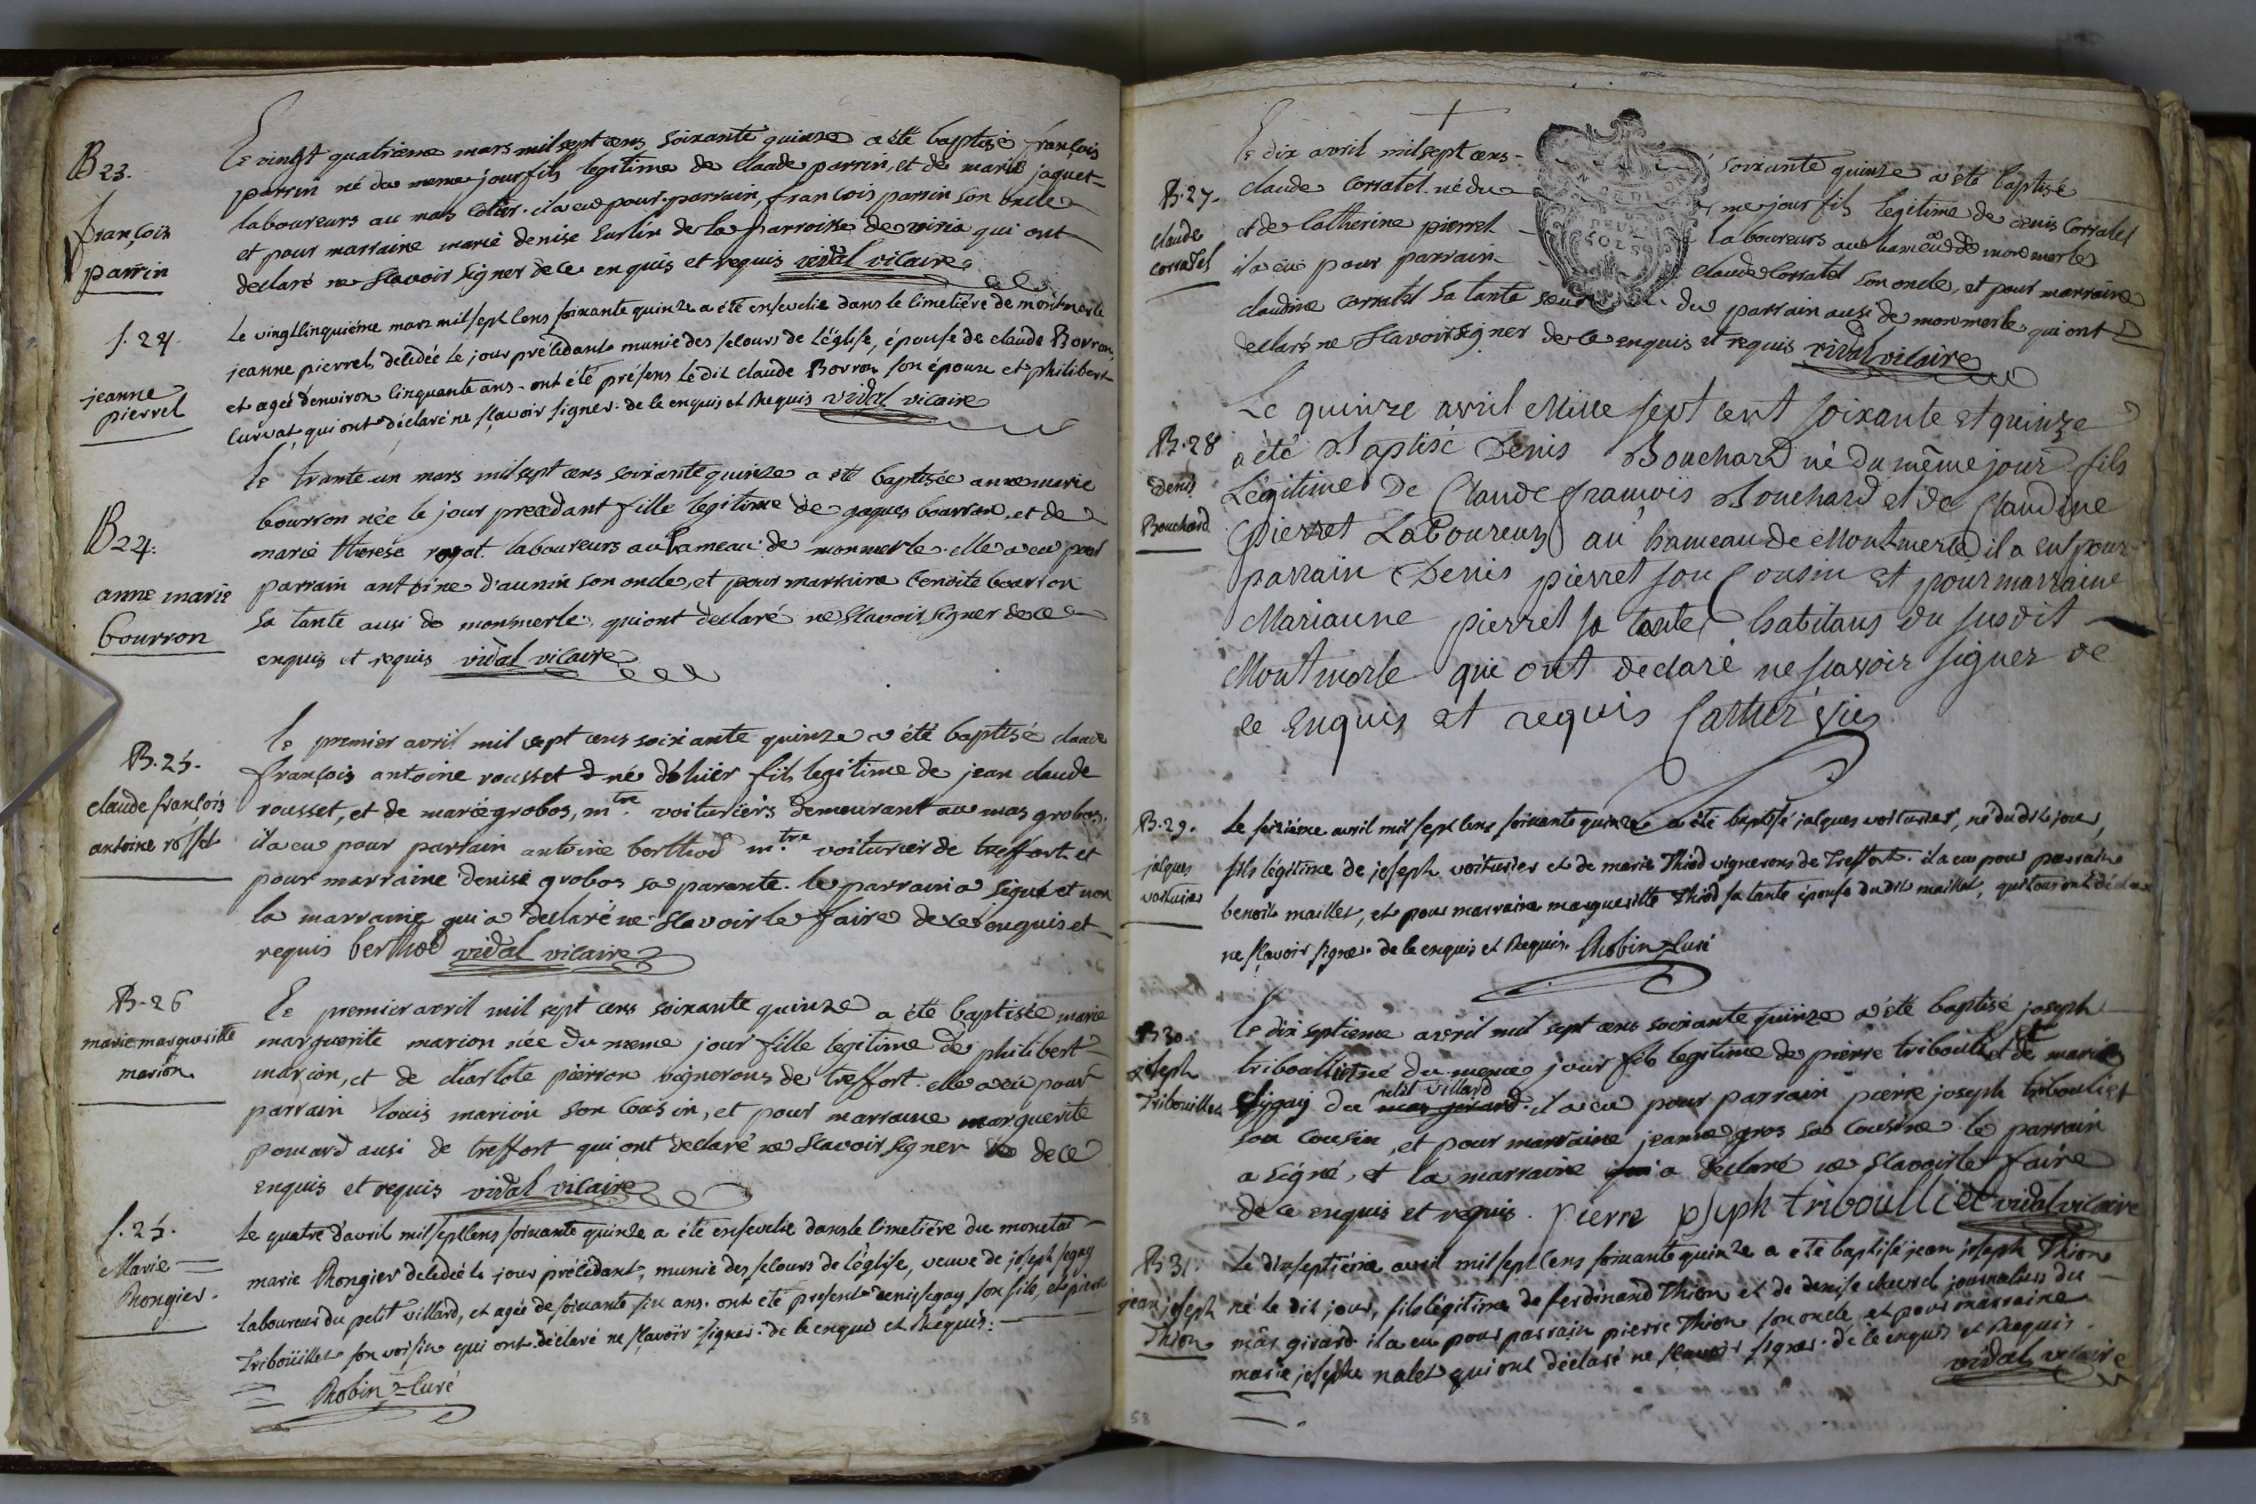 B 23.
françois
parrin
Le vingt quatrieme mars mil sept cens soixante quinze a été baptisé françois
parrin né du meme jour fils legitime de claude parrin, et de marie jaquet
laboureurs au mas  il a eu pour parrain, françois parrin son oncle
et pour marraine marie denise  de la parroisse de  qui ont
declaré ne sçavoir signer de ce enquis et requis vidal vicaire
s. 24.
jeanne
pierrel
Le vingt cinquiéme mars mil sept cens soixante quinze a été ensevelie dans le cimetiére de montmerle
jeanne pierrel, décédée le jour précédant munie des secours de l'église, épouse de claude Borron,
et agée d'environ cinquante ans. ont été présens le dit claude Borron son époux et philibert
curvat, qui ont déclaré ne sçavoir signer. de ce enquis et Requis vidal vicaire
B 24.
anne marie
bourron
le trente un mars mil sept cens soixante quinze a été baptisée anne marie
bourron née le jour precedant fille legitime de jaques bourron, et de
marie therese royat laboureurs au hameau de monmerle. elle a eu pour
parrain antoine d'aunin son oncle, et pour marraine benoite bourron
sa tante ausi de monmerle, qui ont declaré ne sçavoir signer de ce
enquis et requis vidal vicaire
B. 25.
claude françois
antoine rosset
le premier avril mil sept cens soixante quinze a été baptisé claude
françois antoine rousset né d'hier fils legitime de jean claude
rousset, et de marie grobos, mtre. voituriers demeurant au mas grobos.
il a eu pour parrain antoine berthod mtre. voiturier de treffort et
pour marraine denise grobos sa parente. le parrain a signé et non
la marraine qui a declaré ne sçavoir le faire de ce enquis et
requis berthod vidal vicaire
B. 26
marie marguerite
marion
Le premier avril mil sept cens soixante quinze a été baptisée marie
marguerite marion née du meme jour fille legitime de philibert
marion, et de charlote pierron vignerons de treffort. elle a eu pour
parrain louis marion son cousin, et pour marraine marguerite
pomard ausi de treffort qui ont declaré ne sçavoir signer de ce
enquis et requis vidal vicaire
s. 25.
Marie
Rongier.
Le quatre d'avril mil sept cens soixante quinze a été ensevelie dans le cimetiére du monetai
marie Rongier decedée le jour précédant, munie des secours de l'église, veuve de joseph segay
laboureur du petit villard, et agée de soixante six ans. ont été présens denis segay son fils, et pierre
Triboüillet son voisin qui ont déclaré ne sçavoir signer. de ce enquis et Requis.
Robin curé
B. 27.
claude
corratel
Le dix avril mil sept cens soixante quinze a été baptisé
claude corratel né du meme jour fils legitime de denis corratel
et de catherine pierrel laboureurs au hameau de monmerle
il a eu pour parrain claude corratel son oncle, et pour marraine
claudine corratel sa tante soeur du parrain ausi de monmerle qui ont
declaré ne sçavoir signer de ce enquis et requis vidal vicaire
DEUX
SOLS
B. 28
denis
Bouchard
Le quinze avril Mille sept cent soixante et quinze
a été Baptisé Denis Bouchard né du même jour fils
Légitime De Claude françois Bouchard et de Claudine
pierret Laboureurs au hameau de Montmerle il a eut pour
parrain Denis pierret son Cousin et pour marraine
Marianne pierret sa tante habitans du susdit
Montmerle qui ont declaré ne scavoir signer de
ce Enquis et requis Cartier vic
B. 29.
jacques
voiturier
Le seiziéme avril mil sept cens soixante quinze a été baptisé jacques voiturier, né du dit jour,
fils légitime de joseph voiturier et de marie Thiod vignerons de Treffort. il a eu pour parrain
benoît maillet, et pour marraine marguerite Thiod sa tante épouse du dit maillet, qui tous ont déclaré
ne sçavoir signer. de ce enquis et Requis. Robin curé
B 30.
joseph
Tribouillet
Le dix septieme avril mil sept cens soixante quinze a été baptisé joseph
tribouillet né du meme jour fils legitime de pierre tribouillet et de marie
sigay du mas girard petit villard. il a eu pour parrain pierre joseph tribouliet
son cousin, et pour marraine jeanne gros sa cousine. le parrain
a signé, et la marraine qui a declaré ne sçavoir le faire
de ce enquis et requis. pierre joseph tribouilliet vidal vicaire
B 31.
jean joseph
Thion
Le dix septiéme avril mil sept cens soixante quinze a été baptisé jean joseph Thion
né le dit jour, fils légitime de ferdinand Thion et de denise  journaliers du
mas girard. il a eu pour parrain pierre Thion son oncle, et pour marraine
marie josephe nalet qui ont déclaré ne sçavoir signer. de ce enquis et Requis.
vidal vicaire
58